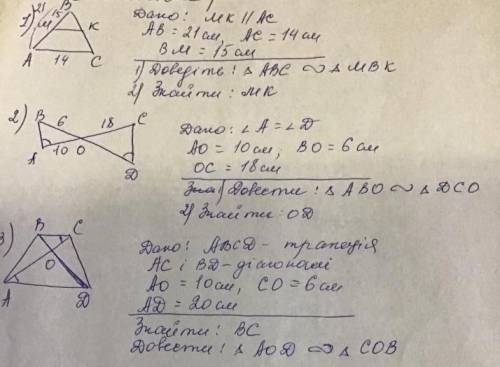 1) 21 15 B
M K
A 14 C
Дано: MK || AC
AB = 21 см, AC = 14 см
BM = 15 см
1) Доведіть: △ ABC ∾ △ MBK
2) Знайти: MK
2) B 6 18 C
A 10 O
D
Дано: ∠A = ∠D
AO = 10 см, BO = 6 см
OC = 18 см
1) Довести: △ ABO ∾ △ DCO
2) Знайти: OD
3) B C
O
A D
Дано: ABCD - трапеція
AC і BD - діагоналі
AO = 10 см, CO = 6 см
AD = 20 см
Знайти: BC
Довести: △ AOD ∾ △ COB